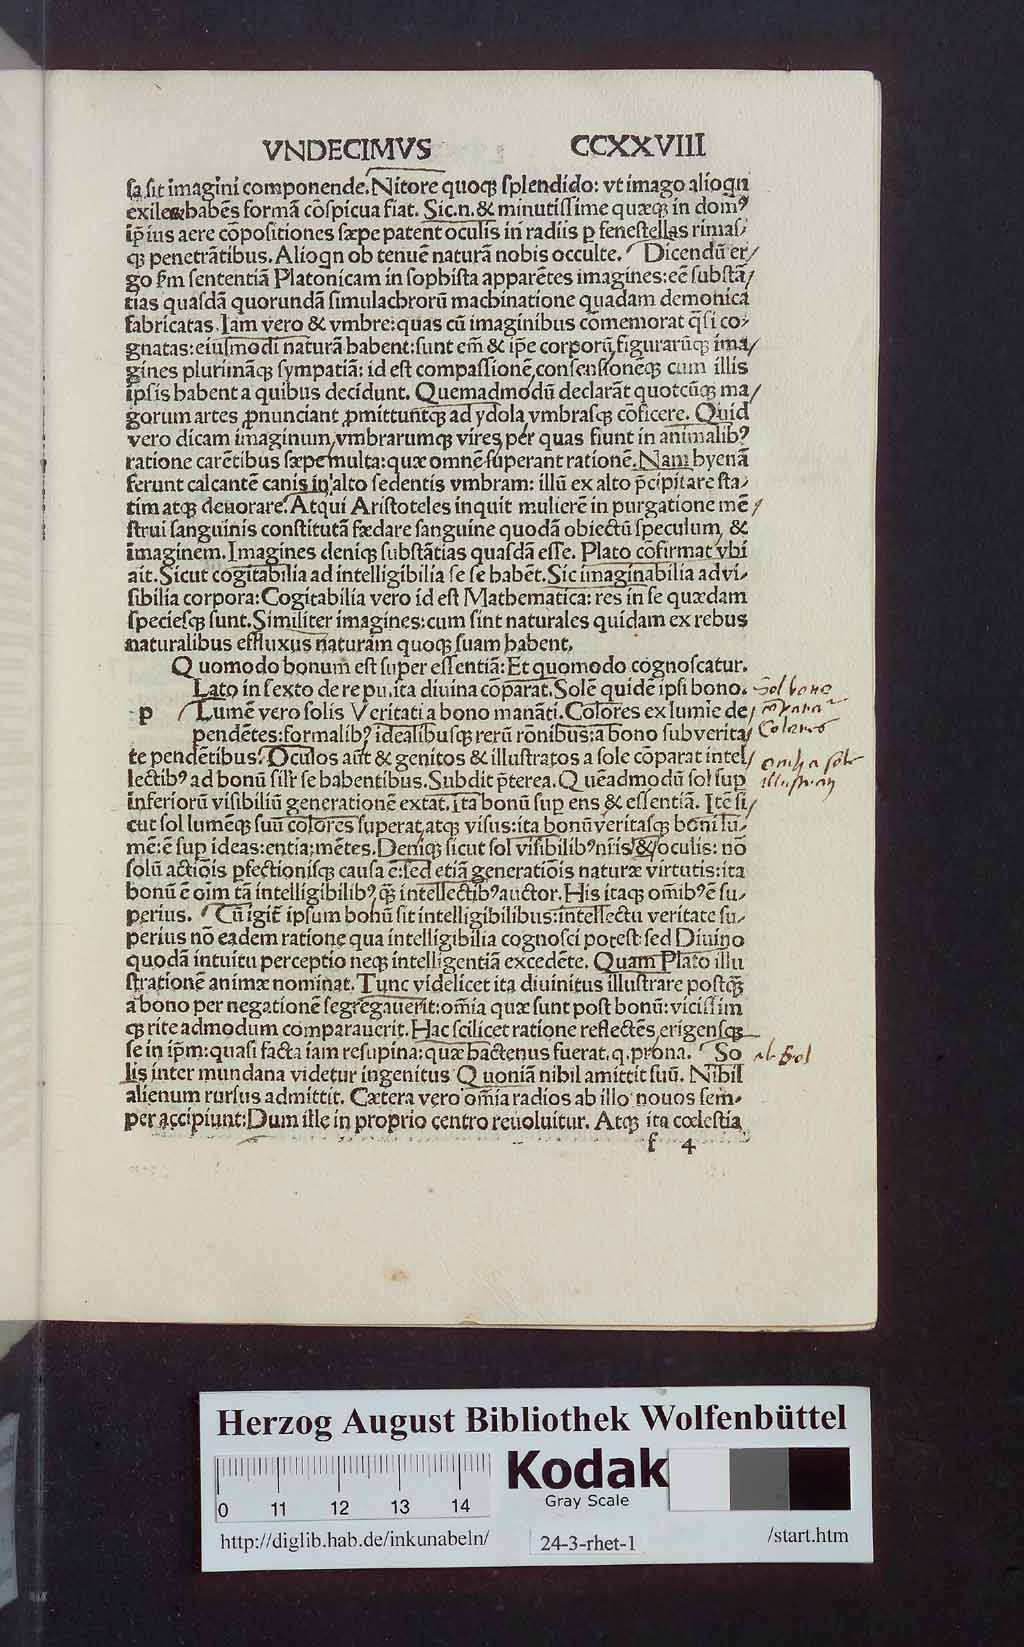 VNDECIMVS CCXXVIII
sa sit imagini componende. Nitore quoqꝫ splendido: vt imago alioqn
exiles babēs formā cōspicua fiat. Sic.n.& minutissime quæqꝫ in domꝰ
ip̄ius aere cōpositiones sæpe patent oculis in radiis p fenestellas rimasʼ
qꝫ penetrātibus. Alioqn ob tenuē naturā nobis occulte. Dicendū er/
go ẜm sententiā Platonicam in sophista apparētes imagines: eē substā/
tias quasdā quorundā simulachrorū machinatione quadam demonica
fabricatas. Iam vero & vmbre: quas cū imaginibus cōmemorat q̄si co/
gnatas: eiusmodi naturā habent: sunt em̄ & ip̄e corporū figurarūqꝫ ima/
gines plurimāqꝫ sympatiā: id est compassionē consensionēqꝫ cum illis
ipsis habent a quibus decidunt. Quemadmodū declarāt quotcūqꝫ ma/
gorum artes ꝓnunciant ꝓmittuntqꝫ ad ydola vmbrasqꝫ cōficere. Quid
vero dicam imaginum vmbrarumqꝫ vires per quas fiunt in animalibꝰ
ratione carētibus sæpe multa: quæ omnē superant rationē. Nam hyenā
ferunt calcantē canis in alto sedentis vmbram: illū ex alto p̄cipitare sta/
tim atqꝫ deuorare. Atqui Aristoteles inquit mulierē in purgatione mē/
strui sanguinis constitutā fœdare sanguine quodā obiectū speculum, &
imaginem. Imagines deniqꝫ substātias quasdā esse. Plato cōfirmat vbi
ait. Sicut cogitabilia ad intelligibilia se se habēt. Sic imaginabilia ad vi/
sibilia corpora: Cogitabilia vero id est Mathematica: res in se quædam
speciesqꝫ sunt. Similiter imagines: cum sint naturales quidam ex rebus
naturalibus effluxus naturam quoqꝫ suam habent.
Quomodo bonum est super essentiā: Et quomodo cognoscatur.
p Lato in sexto de re pu. ita diuina cōparat. Solē quidē ipsi bono.
Lumē vero solis Veritati a bono manāti. Colores ex lumīe de/
pendētes: formalibꝰ idealibusqꝫ rerū rōnibus: a bono sub verita/
te pendētibus. Oculos aūt & genitos & illustratos a sole cōparat intel/
lectibꝰ ad bonū silr̄ se habentibus. Subdit p̄terea. Quēadmodū sol sup
inferiorū visibiliū generationē extat. ita bonū sup ens & essentiā. Itē si/
cut sol lumēqꝫ suū colores superat, atqꝫ visus: ita bonū veritasqꝫ boni lu/
mē: ē sup ideas: entia; mētes. Deniqꝫ sicut sol visibilibꝰ nr̄is & oculis: nō
solū actiōis pfectionisqꝫ causa ē: sed etiā generatiōis naturæ virtutis: ita
bonū ē oīm tā intelligibilibꝰ qꝫ̄ intellectibꝰ auctor. His itaqꝫ om̄ibꝰ ē su/
perius. Cū igit̄ ipsum bonū sit intelligibilibus: intellectu veritate su/
perius nō eadem ratione qua intelligibilia cognosci potest: sed Diuino
quodā intuitu perceptio neqꝫ intelligentiā excedēte. Quam Plato illu
strationē animæ nominat. Tunc videlicet ita diuinitus illustrare postqꝫ̄
a bono per negationē segregauerit: om̄ia quæ sunt post bonū: vicissim
qꝫ rite admodum comparauerit. Hac scilicet ratione reflectēs, erigensqꝫ
se in ip̄m: quasi facta iam resupina: quæ hactenus fuerat. q. prona. So
lis inter mundana videtur ingenitus Quoniā nihil amittit suū. Nihil
alienum rursus admittit. Cætera vero om̄ia radios ab illo nouos sem/
per accipiunt: Dum ille in proprio centro reuoluitur. Atqꝫ ita cœlestia
f 4
Sol bono
Colores
illustrati
Sol
Herzog August Bibliothek Wolfenbüttel
Kodak
Gray Scale
0 11 12 13 14
http://diglib.hab.de/inkunabeln/ 24-3-rhet-1 /start.htm